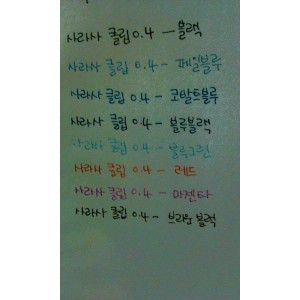 사라사 클립 0.4 - 블랙
사라사 클립 0.4 - 페일블루
사라사 클립 0.4 - 코발트블루
사라사 클립 0.4 - 블루블랙
사라사 클립 0.4 - 블루그린
사라사 클립 0.4 - 레드
사라사 클립 0.4 - 마젠타
사라사 클립 0.4 - 브라운블랙